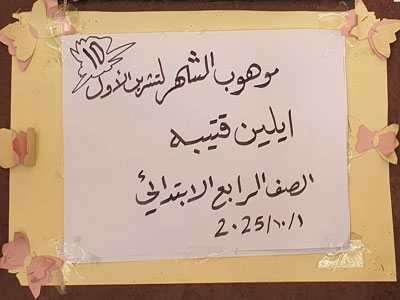 ١٥
موهوب الشهر لتشرين الأول
ايلين قتيبه
الصف الرابع الابتدائي
2025/١٠/١